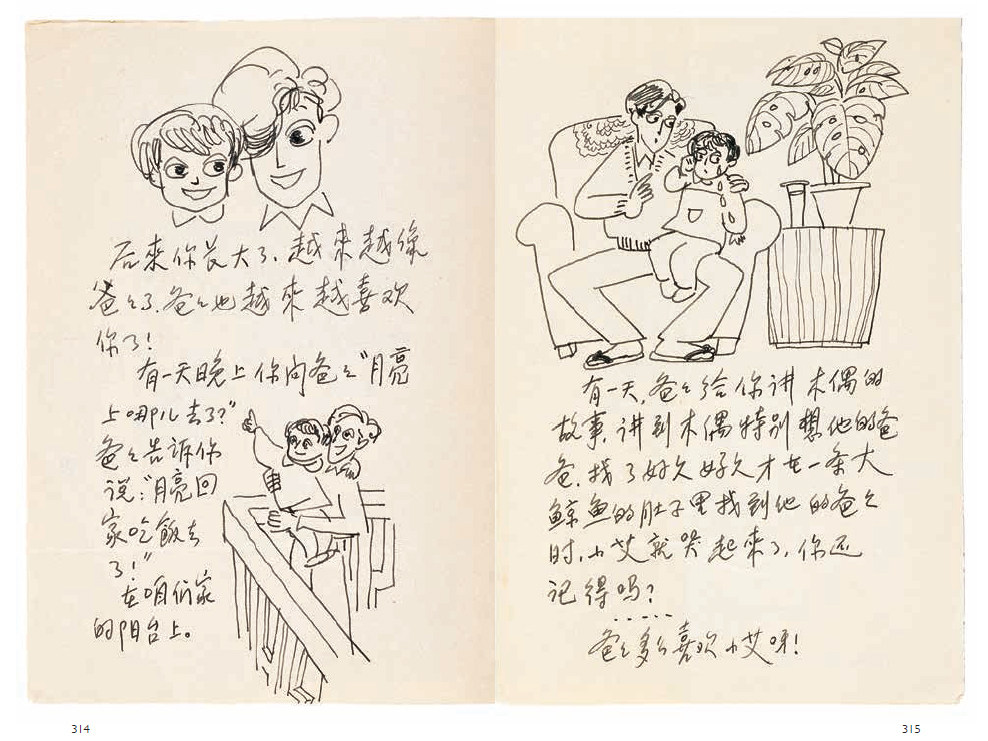 后来你长大了，越来越像
爸爸了，爸爸也越来越喜欢
你了！
有一天晚上你问爸爸“月亮
上哪儿去了？”
爸爸告诉你
说：“月亮回
家吃飯去
了！”
在咱们家
的阳台上。
314
有一天，爸爸给你讲木偶的
故事，讲到木偶特别想他的爸
爸，找了好久好久才在一条大
鲸鱼的肚子里找到他的爸爸
时，小艾就哭起来了，你还
记得吗？
……
爸爸多么喜欢小艾呀！
315